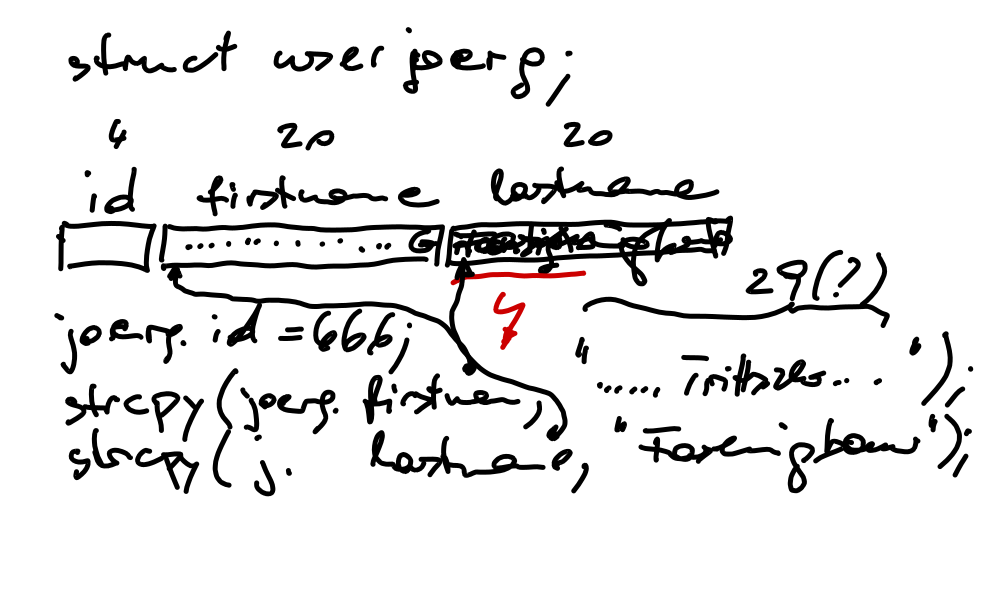 struct user joerg;
4 20 20
id firstname lastname
G
29(?)
joerg. id = 666;
strcpy(joerg. firstnam, "......");
strcpy(j. lastname, "");